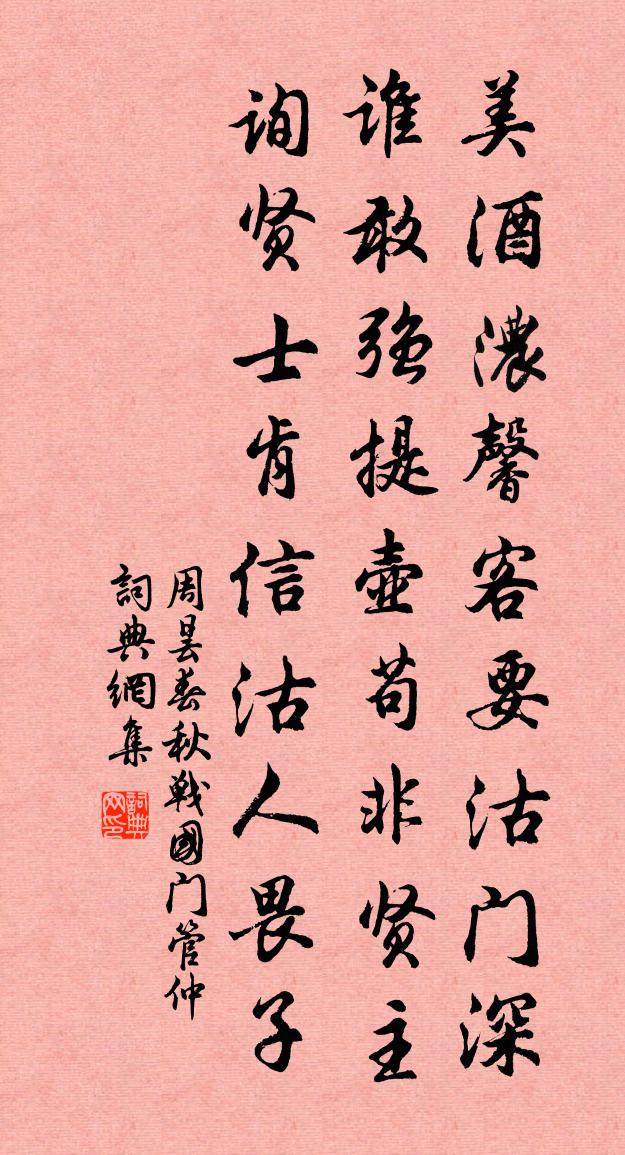 美酒濃馨客要沽门深
谁敢强提壶苟非贤主
询贤士肯信沽人畏子
周昙春秋戦國门管仲
詞典網集
詞典网印